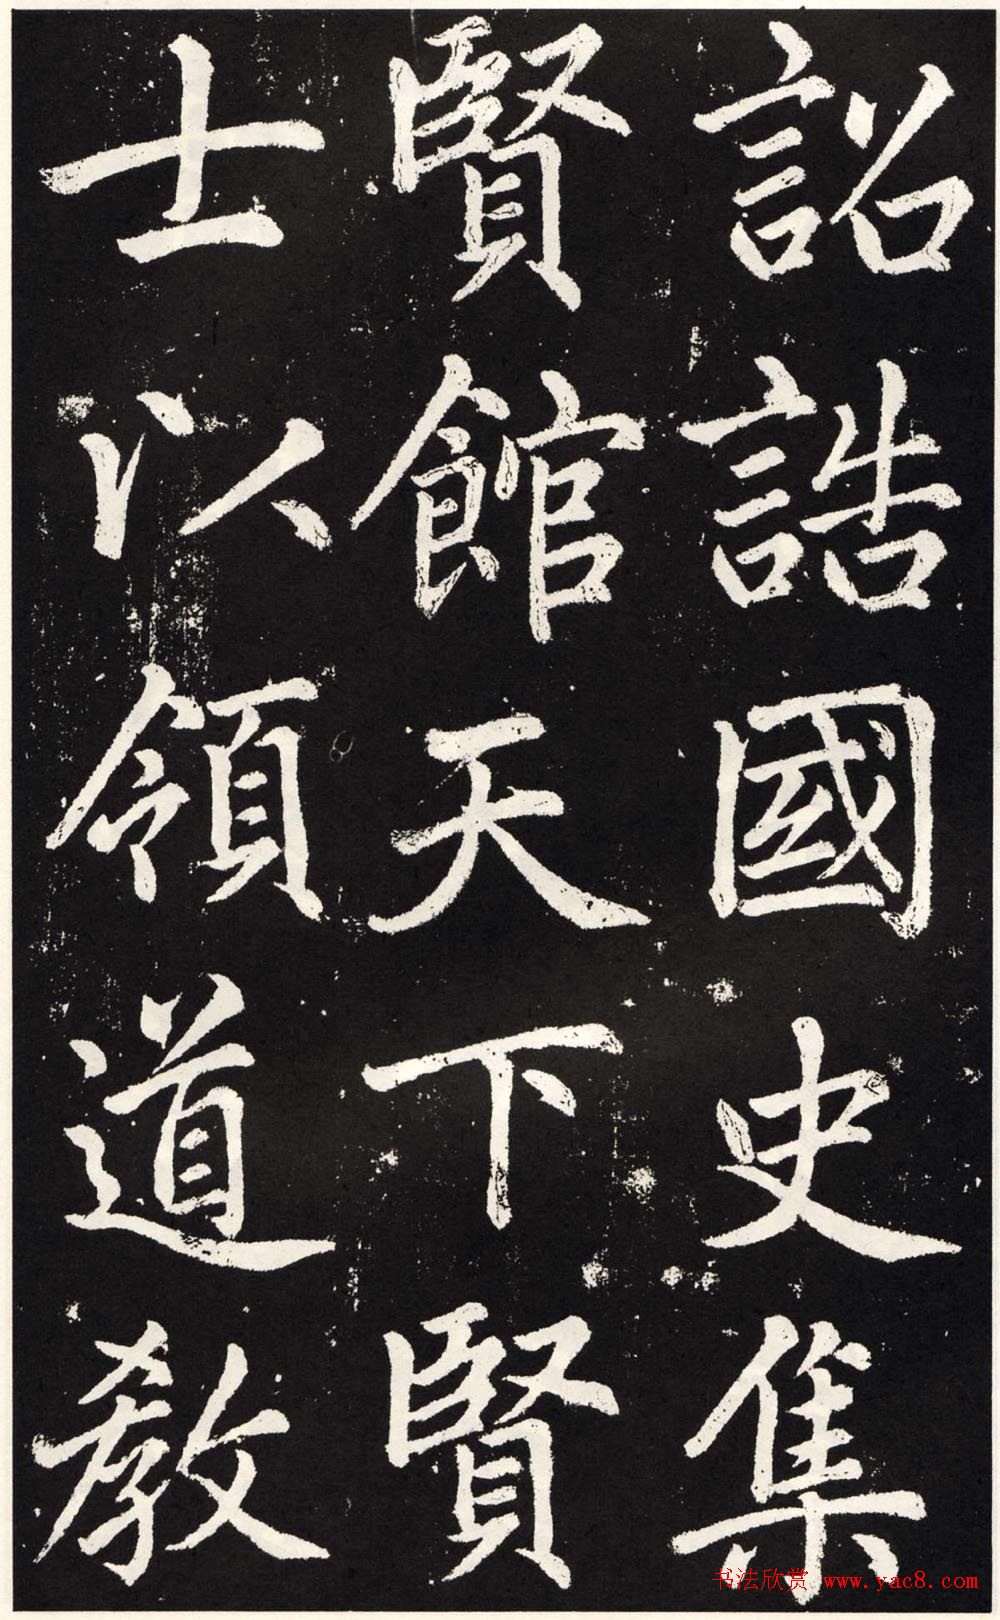 詔誥國史集
賢館天下賢
士以領道教
书法欣赏 www.yac8.com